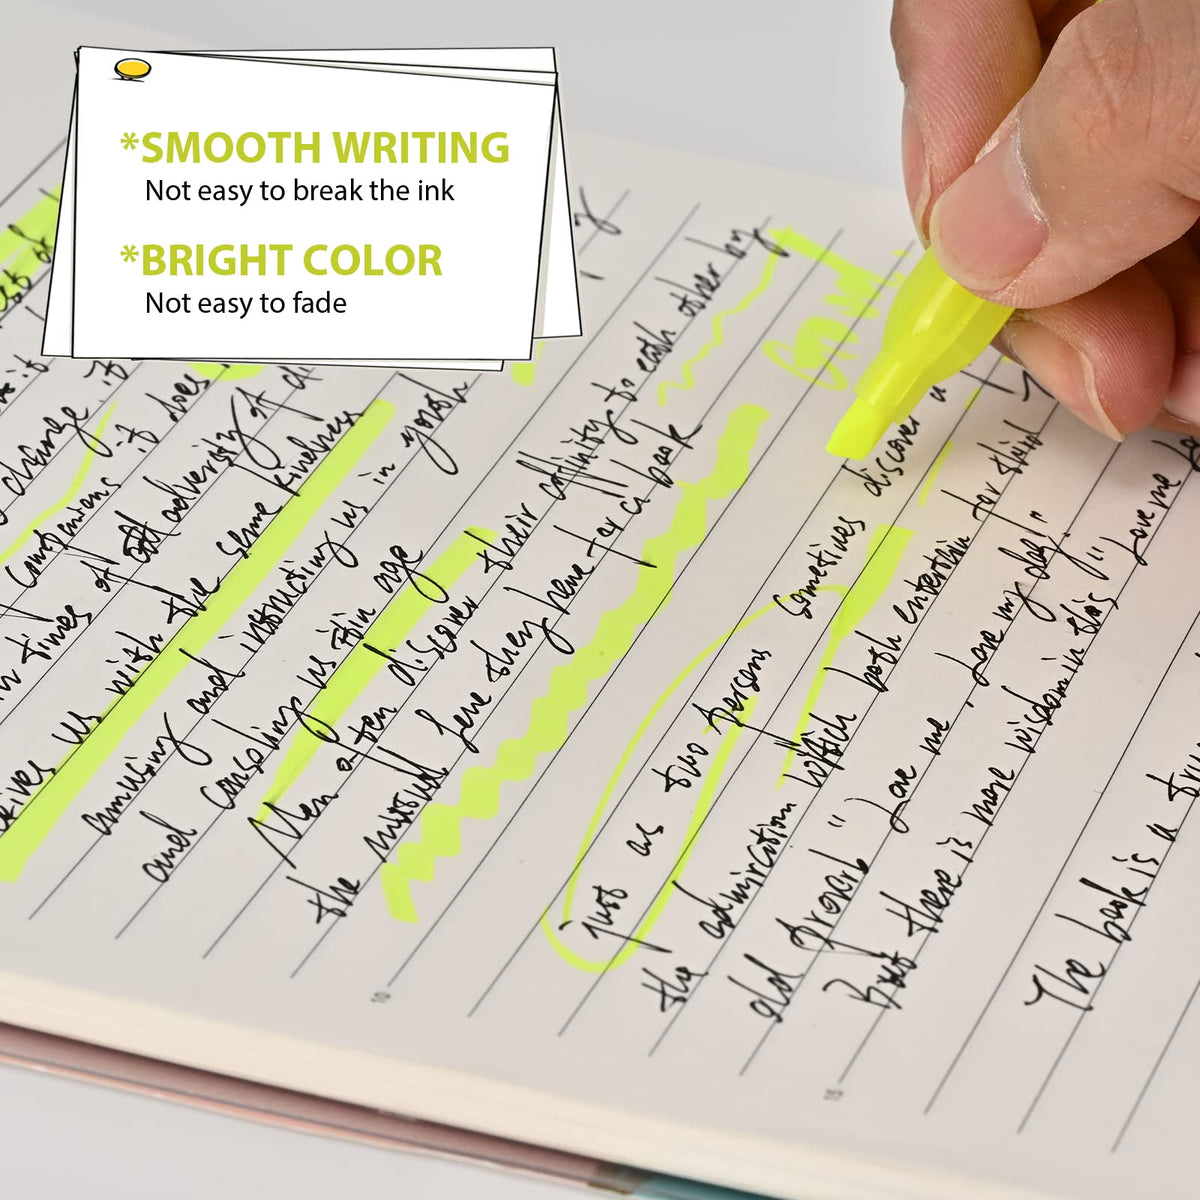 *SMOOTH WRITING
Not easy to break the ink
*BRIGHT COLOR
Not easy to fade
change. it
companions it does
in times of adversity
us with the same kindness
amusing and instructing us in youth
and consoling us in age
Men often discover their affinity to each other by
the mutual love they have for a book
just as two persons sometimes discover a
the admiration which both entertain for third
old proverb " Love me , Love my dog "
But there is more wisdom in this " Love me
The book is a
10
15